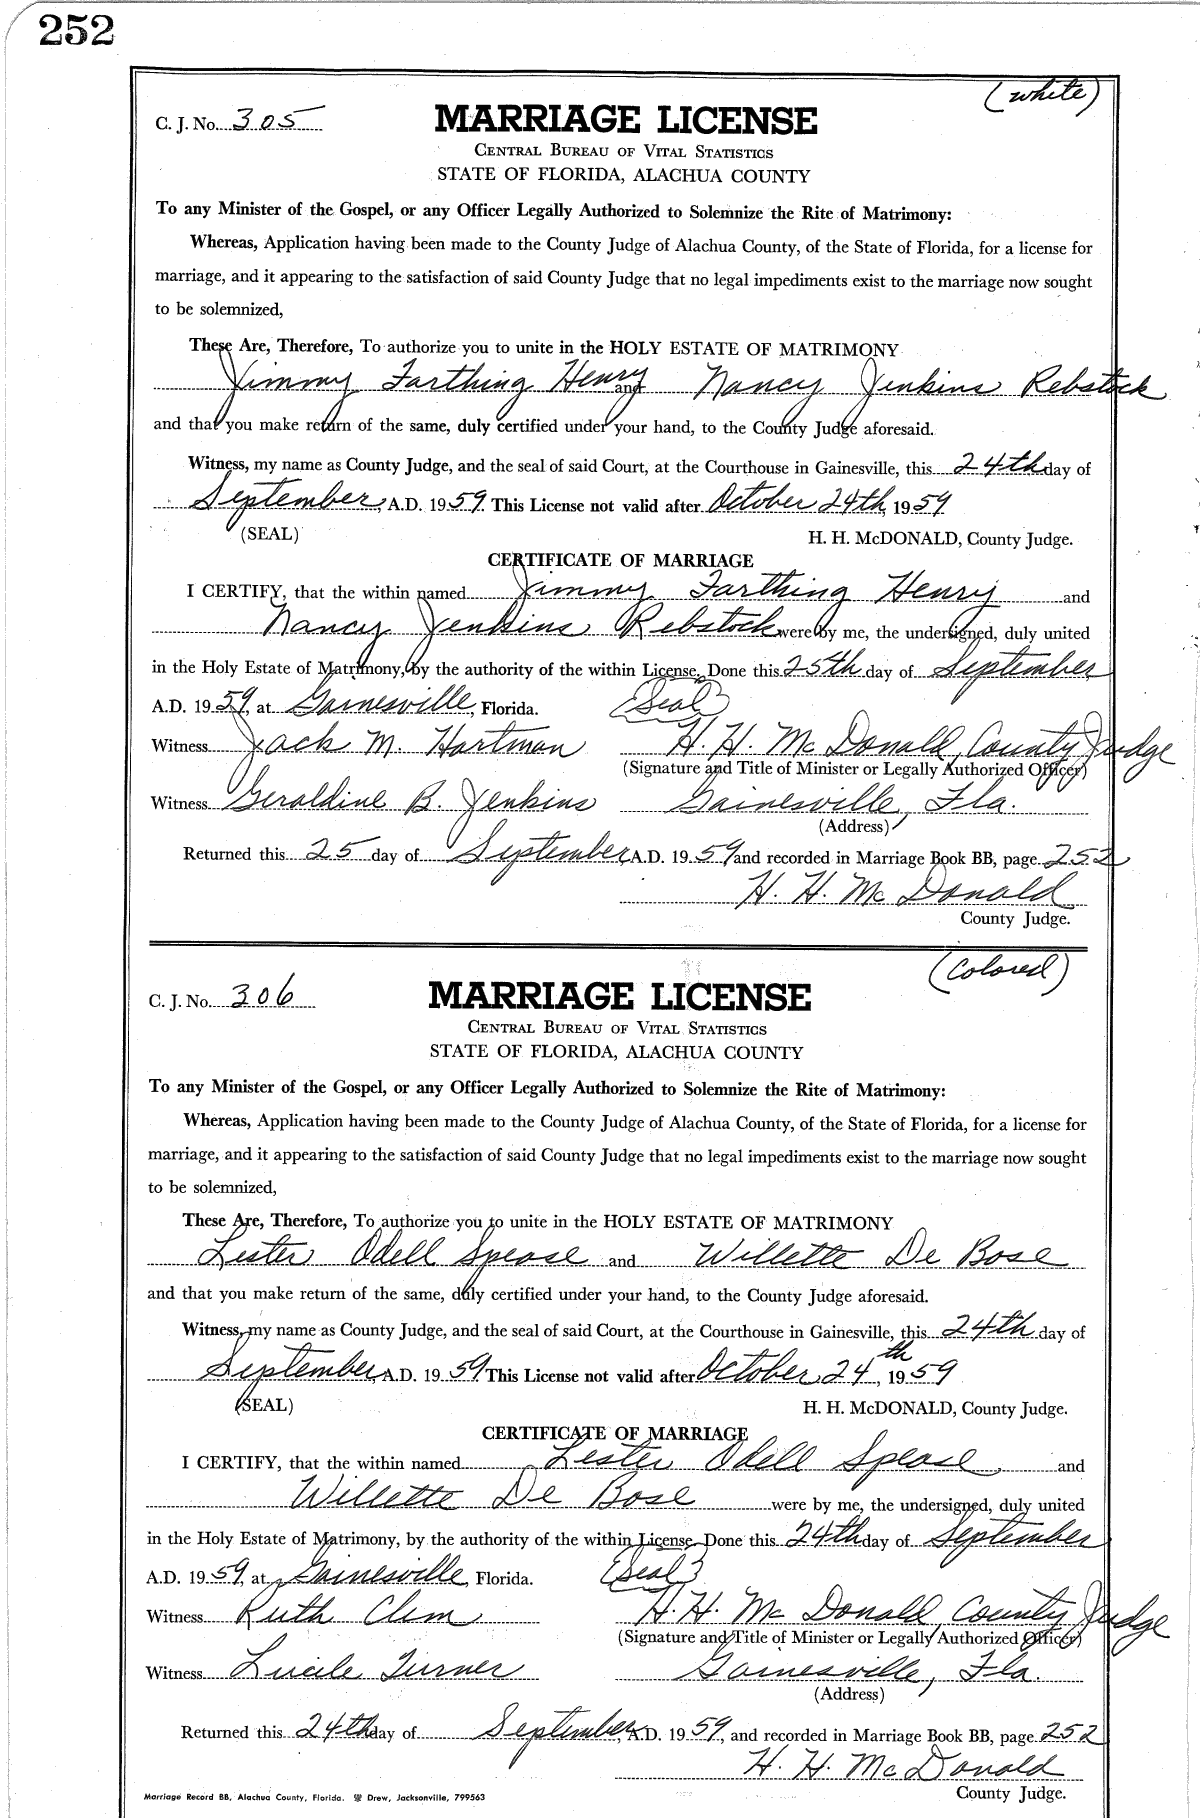 252
(white)
C. J. No. 305
MARRIAGE LICENSE
CENTRAL BUREAU OF VITAL STATISTICS
STATE OF FLORIDA, ALACHUA COUNTY
To any Minister of the Gospel, or any Officer Legally Authorized to Solemnize the Rite of Matrimony:
Whereas, Application having been made to the County Judge of Alachua County, of the State of Florida, for a license for
marriage, and it appearing to the satisfaction of said County Judge that no legal impediments exist to the marriage now sought
to be solemnized,
These Are, Therefore, To authorize you to unite in the HOLY ESTATE OF MATRIMONY
Jimmy Farthing Henry and Nancy Jenkins Rebstock
and that you make return of the same, duly certified under your hand, to the County Judge aforesaid.
Witness, my name as County Judge, and the seal of said Court, at the Courthouse in Gainesville, this 24th day of
September, A.D. 1959. This License not valid after October 24th, 1959
(SEAL) H. H. McDONALD, County Judge.
CERTIFICATE OF MARRIAGE
I CERTIFY, that the within named Jimmy Farthing Henry and
Nancy Jenkins Rebstock were by me, the undersigned, duly united
in the Holy Estate of Matrimony, by the authority of the within License. Done this 25th day of September
A.D. 1959, at Gainesville, Florida. (Seal)
Witness Jack M. Hartman H. H. McDonald, County Judge
(Signature and Title of Minister or Legally Authorized Officer)
Witness Geraldine B. Jenkins Gainesville, Fla.
(Address)
Returned this 25 day of September A.D. 1959 and recorded in Marriage Book BB, page 252
H. H. McDonald
County Judge.
(Colored)
C. J. No. 306
MARRIAGE LICENSE
CENTRAL BUREAU OF VITAL STATISTICS
STATE OF FLORIDA, ALACHUA COUNTY
To any Minister of the Gospel, or any Officer Legally Authorized to Solemnize the Rite of Matrimony:
Whereas, Application having been made to the County Judge of Alachua County, of the State of Florida, for a license for
marriage, and it appearing to the satisfaction of said County Judge that no legal impediments exist to the marriage now sought
to be solemnized,
These Are, Therefore, To authorize you to unite in the HOLY ESTATE OF MATRIMONY
Lester Odell Spease and Willette De Bose
and that you make return of the same, duly certified under your hand, to the County Judge aforesaid.
Witness, my name as County Judge, and the seal of said Court, at the Courthouse in Gainesville, this 24th day of
September, A.D. 1959 This License not valid after October 24th, 1959
(SEAL) H. H. McDONALD, County Judge.
CERTIFICATE OF MARRIAGE
I CERTIFY, that the within named Lester Odell Spease and
Willette De Bose were by me, the undersigned, duly united
in the Holy Estate of Matrimony, by the authority of the within License. Done this 24th day of September
A.D. 1959, at Gainesville, Florida. (Seal)
Witness Ruth Clem H. H. McDonald, County Judge
(Signature and Title of Minister or Legally Authorized Officer)
Witness Lucile Turner Gainesville, Fla.
(Address)
Returned this 24th day of September, A.D. 1959, and recorded in Marriage Book BB, page 252
H. H. McDonald
County Judge.
Marriage Record BB, Alachua County, Florida. Drew, Jacksonville, 799563